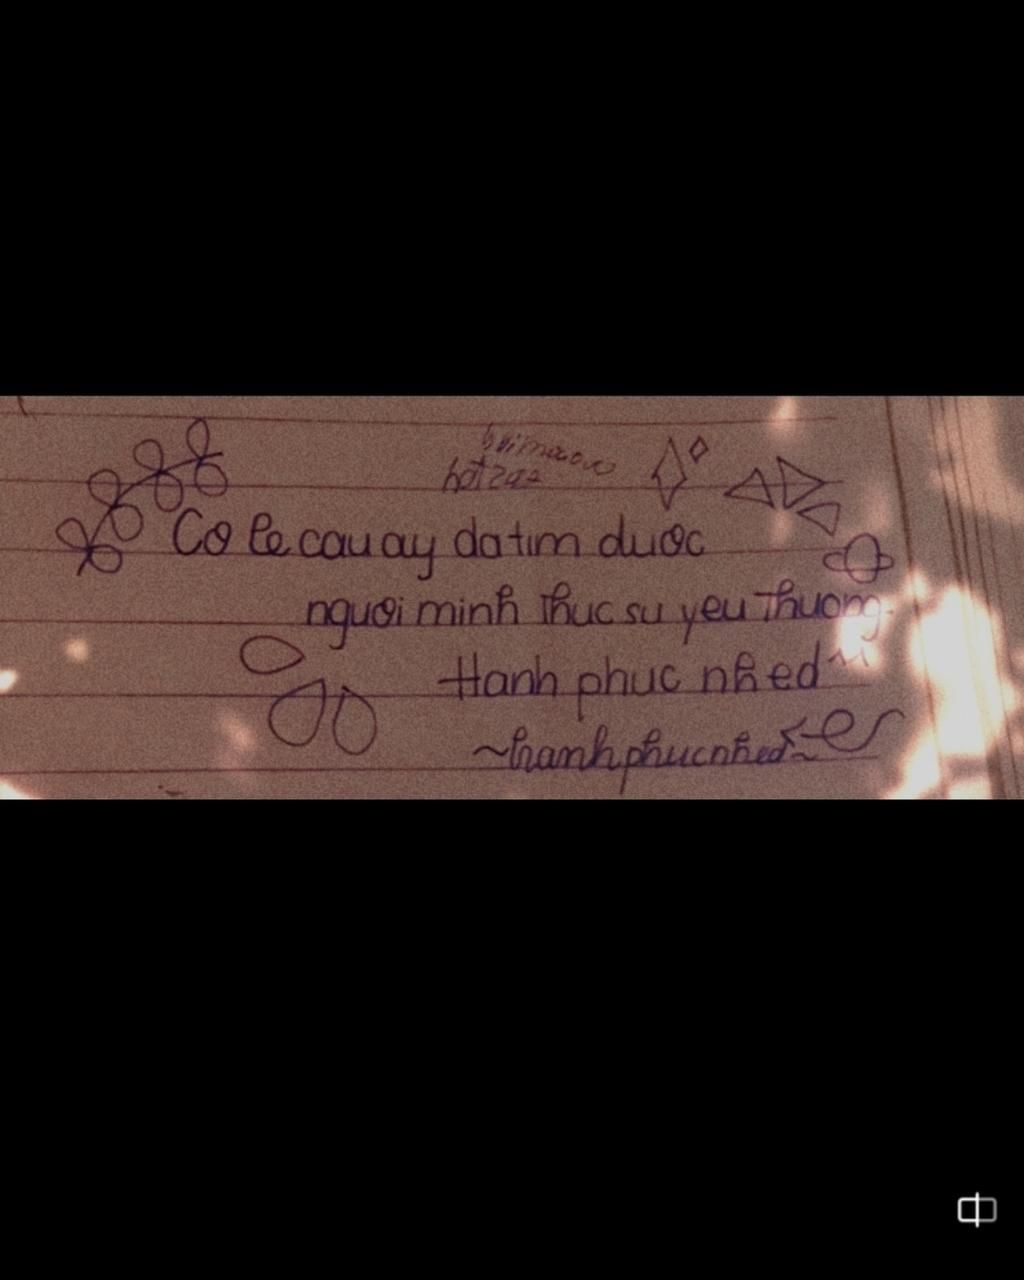 Co le cau ay da tim duoc
nguoi minh thuc su yeu thuong.
Hanh phuc nh ed ^^
~hanh phuc nhed~